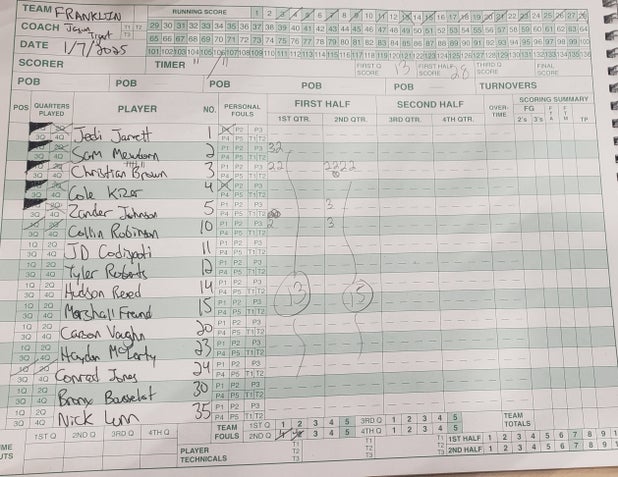 TEAM FRANKLIN
RUNNING SCORE 1 2 3 4 5 6 7 8 9 10 11 12 13 14 15 16 17 18 19 20 21 22 23 24 25 26 27 28
COACH Jason T1 T2 T3 29 30 31 32 33 34 35 36 37 38 39 40 41 42 43 44 45 46 47 48 49 50 51 52 53 54 55 56 57 58 59 60 61 62 63 64
65 66 67 68 69 70 71 72 73 74 75 76 77 78 79 80 81 82 83 84 85 86 87 88 89 90 91 92 93 94 95 96 97 98 99 100
DATE 1/7/2025 101 102 103 104 105 106 107 108 109 110 111 112 113 114 115 116 117 118 119 120 121 122 123 124 125 126 127 128 129 130 131 132 133 134 135 136
SCORER TIMER FIRST Q SCORE 13 FIRST HALF SCORE 28 THIRD Q SCORE FINAL SCORE
POB POB POB POB POB TURNOVERS
POS QUARTERS PLAYED PLAYER NO. PERSONAL FOULS FIRST HALF SECOND HALF OVER-TIME SCORING SUMMARY
1ST QTR. 2ND QTR. 3RD QTR. 4TH QTR. FG 2's 3's FTA FTM TP
Jedi Jarrett 1 P2 P3
3Q 4Q P4 P5 T1 T2
Sam Mewborn 2 P1 P2 P3 32
3Q 4Q P4 P5 T1 T2
Christian Brown 3 P1 P2 P3 22 2222
3Q 4Q P4 P5 T1 T2
Cole Kizer 4 P2 P3
3Q 4Q P4 P5 T1 T2
Zander Johnson 5 P1 P2 P3 3
3Q 4Q P4 P5 T1 T2
Collin Robinson 10 P1 P2 P3 2 3
3Q 4Q P4 P5 T1 T2
1Q 2Q JD Codispoti 11 P1 P2 P3
3Q 4Q P4 P5 T1 T2
1Q 2Q Tyler Roberts 12 P1 P2 P3
3Q 4Q P4 P5 T1 T2
1Q 2Q Hudson Reed 14 P1 P2 P3 13 15
3Q 4Q P4 P5 T1 T2
1Q 2Q Marshall Friend 15 P1 P2 P3
3Q 4Q P4 P5 T1 T2
1Q 2Q Carson Vaughn 20 P1 P2 P3
3Q 4Q P4 P5 T1 T2
1Q 2Q Hayden McLarty 23 P1 P2 P3
3Q 4Q P4 P5 T1 T2
1Q 2Q Conrad Jones 24 P1 P2 P3
3Q 4Q P4 P5 T1 T2
1Q 2Q Bronx 30 P1 P2 P3
3Q 4Q P4 P5 T1 T2
1Q 2Q Nick Lunn 35 P1 P2 P3
3Q 4Q P4 P5 T1 T2
1ST Q 2ND Q 3RD Q 4TH Q TEAM FOULS 1ST Q 1 2 3 4 5 3RD Q 1 2 3 4 5 TEAM TOTALS
2ND Q 1 2 3 4 5 4TH Q 1 2 3 4 5
PLAYER TECHNICALS T1 T2 T3 T1 T2 T3 1ST HALF 1 2 3 4 5 6 7 8 9
2ND HALF 1 2 3 4 5 6 7 8 9